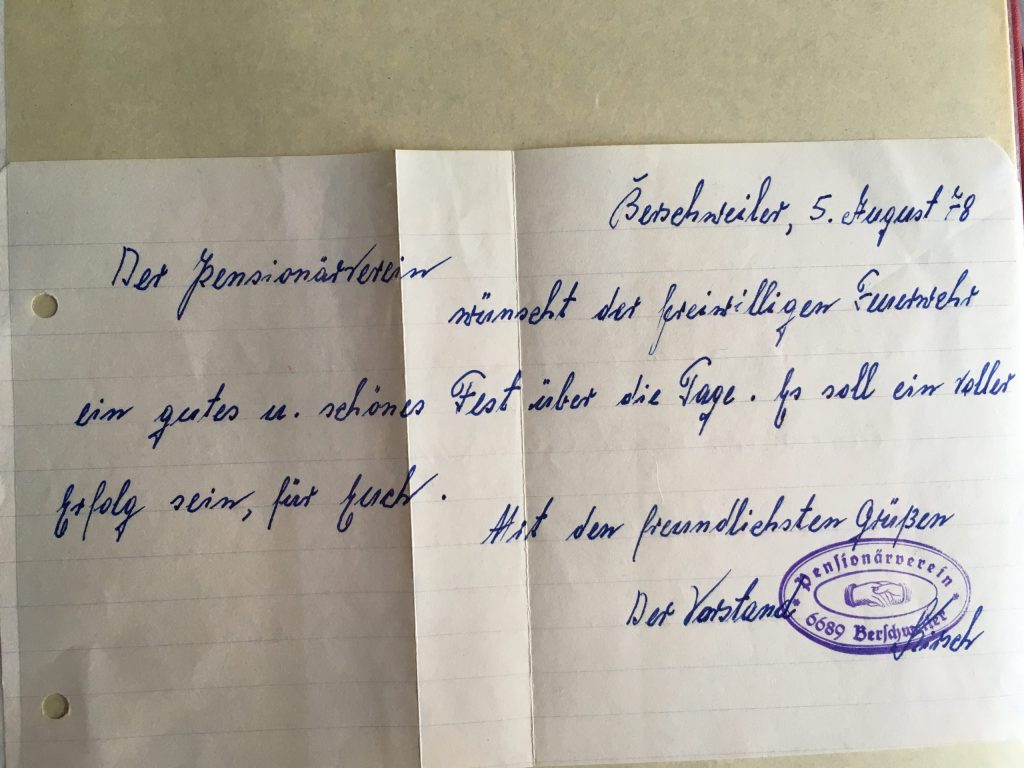 Berschweiler, 5. August 78
Der Pensionärverein
wünscht der freiwilligen Feuerwehr
ein gutes u. schönes Fest über die Tage. Es soll ein voller
Erfolg sein, für Euch.
Mit den freundlichsten Grüßen
Der Vorstand
Pensionärverein
6689 Berschweiler